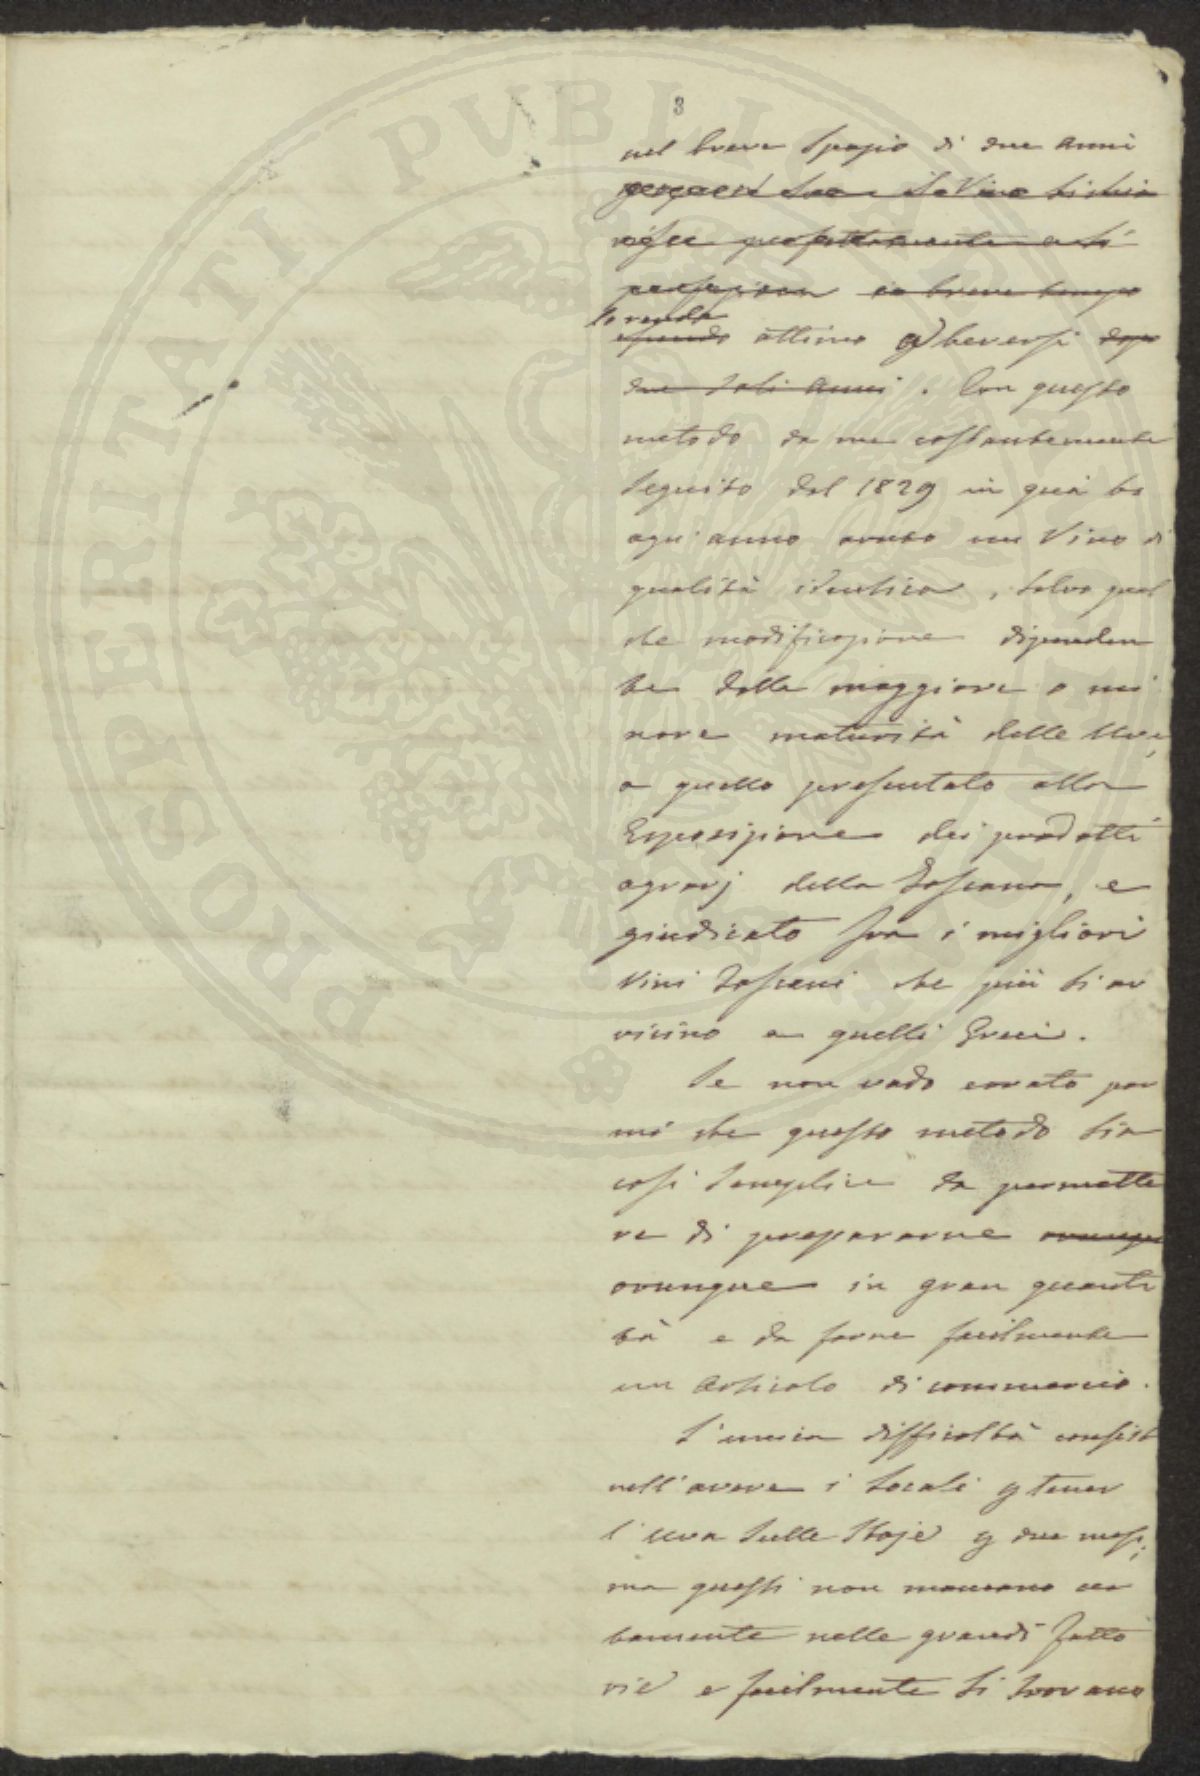 3
nel breve spazio di due anni
il Vino si chia
perfettamente e si
in breve tempo
lo rende
essendo ottimo a beversi dopo
due soli anni. Con questo
metodo da me costantemente
seguito dal 1829 in quà ho
ogn'anno avuto un Vino di
qualità identica, salvo qual
che modificazione dipenden
te dalla maggiore o mi
nore maturità delle Uve,
a quello presentato alla
Esposizione dei prodotti
agrarj della Toscana, e
giudicato fra i migliori
Vini Toscani che più si av
vicino a quelli Greci.
Se non vado errato par
mi che questo metodo sia
cosi semplice da permette
re di prepararne ovunqu
ovunque in gran quanti
tà e da farne facilmente
un Articolo di commercio.
L'unica difficoltà consist
nell'avere i locali p tener
l'uva sulle Stoje p due mesi,
ma questi non mancano cer
tamente nelle grandi Fatto
rie e facilmente si trovano
PROSPERITATI PVBLICAE